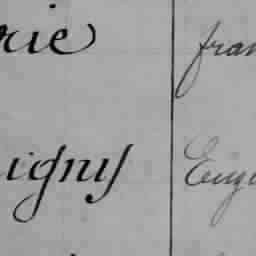 rie fran
igny Euge